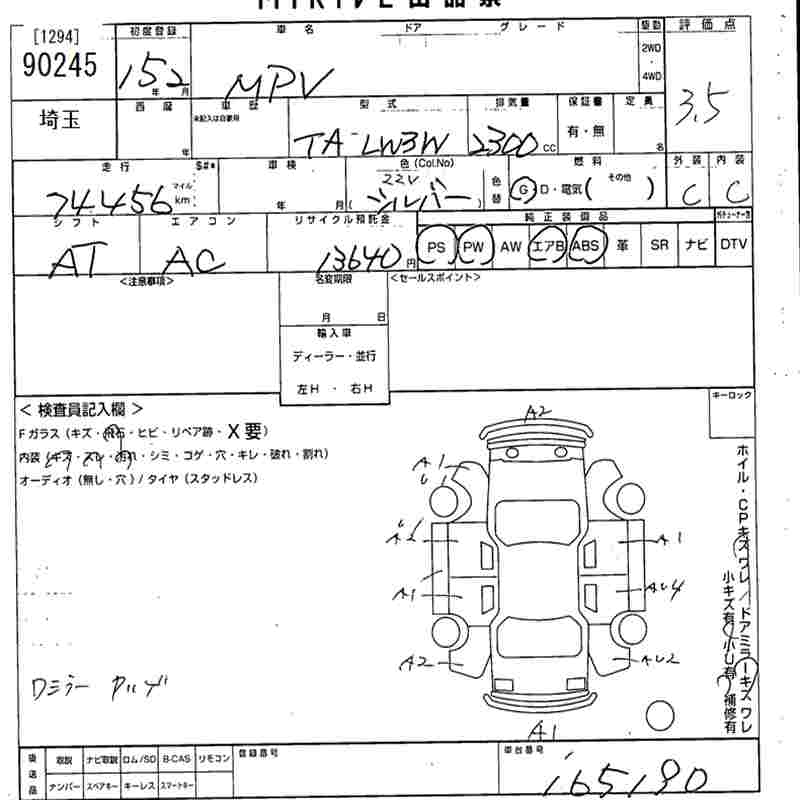 [1294]
90245
初度登録 車名 ドア グレード 駆動 評価点
15 年 2 月 MPV 2WD・4WD 3.5
埼玉 西暦 年 車歴 未記入は自家用 型式 TA-LW3W 排気量 2300 cc 保証書 有・無 定員 名
走行 $#* 車検 色(Col.No) 燃料 外装 内装
74.456 マイル km 年 月 ( 22V シルバー ) 色替 G D・電気( その他 ) C C
シフト エアコン リサイクル預託金 純正装備品
AT AC 13640 円 PS PW AW エアB ABS 革 SR ナビ DTV
<注意事項> 名変期限 <セールスポイント>
月 日
輸入車
ディーラー・並行
左H ・ 右H
< 検査員記入欄 > キーロック
Fガラス (キズ・飛石・ヒビ・リペア跡・X要)
内装 (キズ・スレ・汚れ・シミ・コゲ・穴・キレ・破れ・割れ)
オーディオ (無し・穴) / タイヤ (スタッドレス)
A2
A1
U1
A2 A1
A1 AU4
A2 AU2
A1
ホイル・CPキズワレ/ドアミラーキズワレ
小キズ有/小U有/補修有
後送品 取説 ナビ取説 ロム/SD B-CAS リモコン 登録番号 車台番号
ナンバー スペアキー キーレス スマートキー 165190